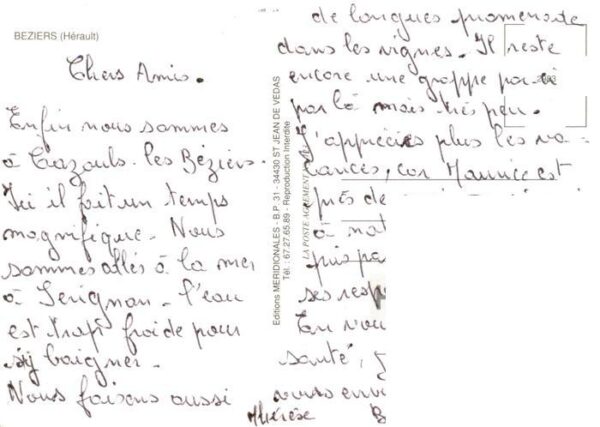 BEZIERS (Hérault)
Chers Amis.
Enfin nous sommes
à Cazouls-les Béziers.
Ici il fait un temps
magnifique. Nous
sommes allés à la mer
à Serignan. l'eau
est trop froide pour
s'y baigner.
Nous faisons aussi
Editions MERIDIONALES - B.P. 31 - 34430 ST JEAN DE VEDAS
Tél. : 67.27.65.89 - Reproduction Interdite
LA POSTE AGREMENT
de longues promenade
dans les vignes. Il reste
encore une grappe par ci
par là mais très peu.
J'apprécies plus les va-
cances, car Maurice est
près de
à nat
puis pa
ses resp
En vou
santé,
vous env
Thérèse